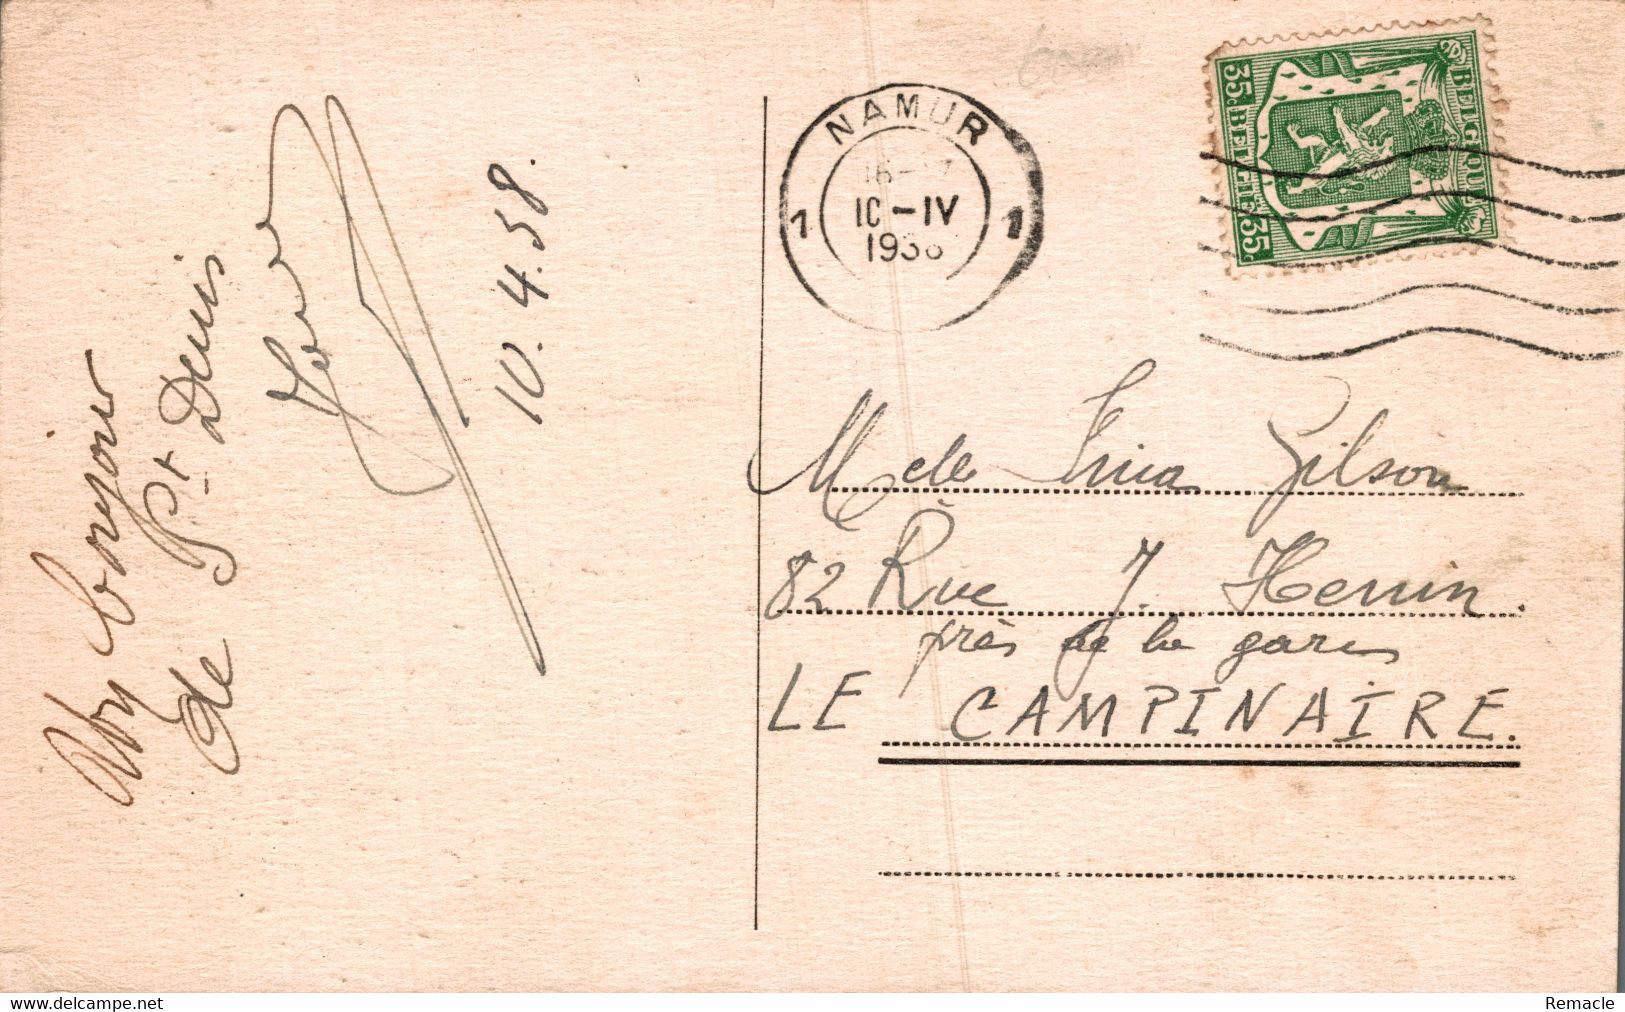 Mon bonjour
de St Denis
10.4.38.
NAMUR
1 1
10-IV
1938
BELGIQUE
35c BELGIE 35c
Melle Irica Gilson
82 Rue J. Henin.
près de la gare
LE CAMPINAIRE.
www.delcampe.net
Remacle